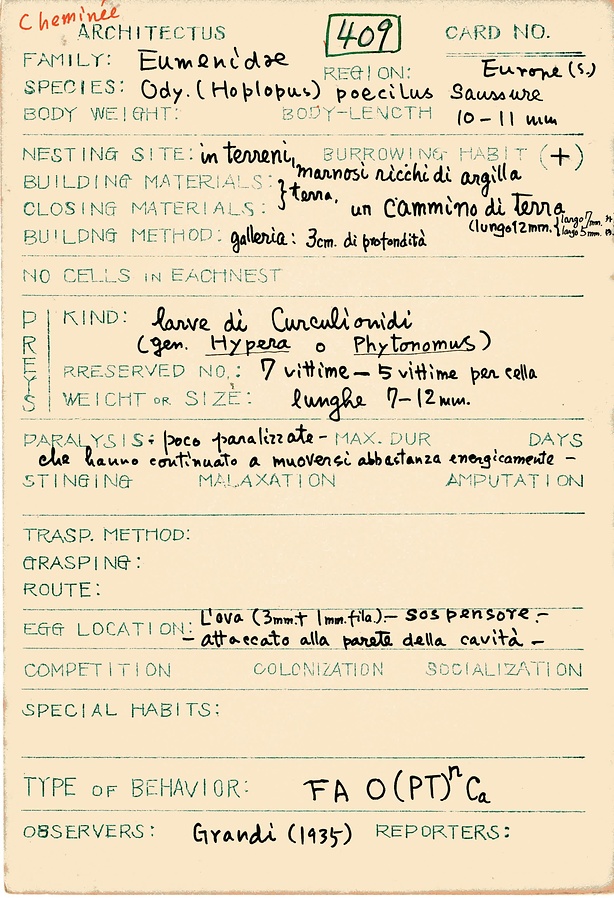 Cheminée
ARCHITECTUS 409 CARD NO.
FAMILY: Eumenidae
REGION: Europe (S.)
SPECIES: Ody. (Hoplopus) poecilus Saussure
BODY WEIGHT: BODY-LENGTH 10-11 mm
NESTING SITE: in terreni, BURROWING HABIT (+)
marnosi ricchi di argilla
BUILDING MATERIALS: } terra,
CLOSING MATERIALS: un cammino di terra
(lungo 12mm. { largo 7mm.
largo 5mm.
BUILDNG METHOD: galleria: 3cm. di profondità
NO CELLS IN EACHNEST
PREYS
KIND: larve di Curculionidi
(gen. Hypera o Phytonomus)
RRESERVED NO.: 7 vittime – 5 vittime per cella
WEIGHT OR SIZE: lunghe 7-12mm.
PARALYSIS: poco paralizzate - MAX. DUR DAYS
che hanno continuato a muoversi abbastanza energicamente –
STINGING MALAXATION AMPUTATION
TRASP. METHOD:
GRASPING:
ROUTE:
L'ova (3mm.+ 1mm. fila.) – sospensore. –
EGG LOCATION: – attaccato alla parete della cavità –
COMPETITION COLONIZATION SOCIALIZATION
SPECIAL HABITS:
TYPE OF BEHAVIOR: FA O(PT)ⁿ Ca
OBSERVERS: Grandi (1935) REPORTERS: